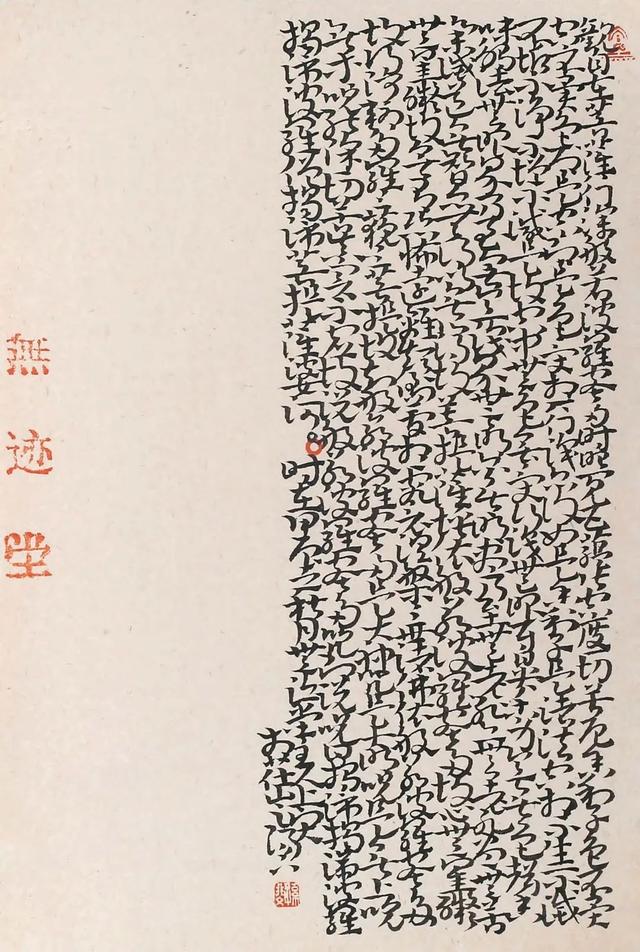 觀自在菩薩行深般若波羅蜜多時照見五蘊皆空度一切苦厄舍利子色不異
空空不異色色即是空空即是色受想行識亦復如是舍利子是諸法空相不生不滅
不垢不淨不增不減是故空中無色無受想行識無眼耳鼻舌身意無色聲香
味觸法無眼界乃至無意識界無無明亦無無明盡乃至無老死亦無老死盡無苦
集滅道無智亦無得以無所得故菩提薩埵依般若波羅蜜多故心無罣礙
無罣礙故無有恐怖遠離顛倒夢想究竟涅槃三世諸佛依般若波羅蜜多
故得阿耨多羅三藐三菩提故知般若波羅蜜多是大神咒是大明咒是無上咒
是無等等咒能除一切苦真實不虛故說般若波羅蜜多咒即說咒曰揭諦揭諦波羅
揭諦波羅僧揭諦菩提薩婆訶 時在甲
無迹